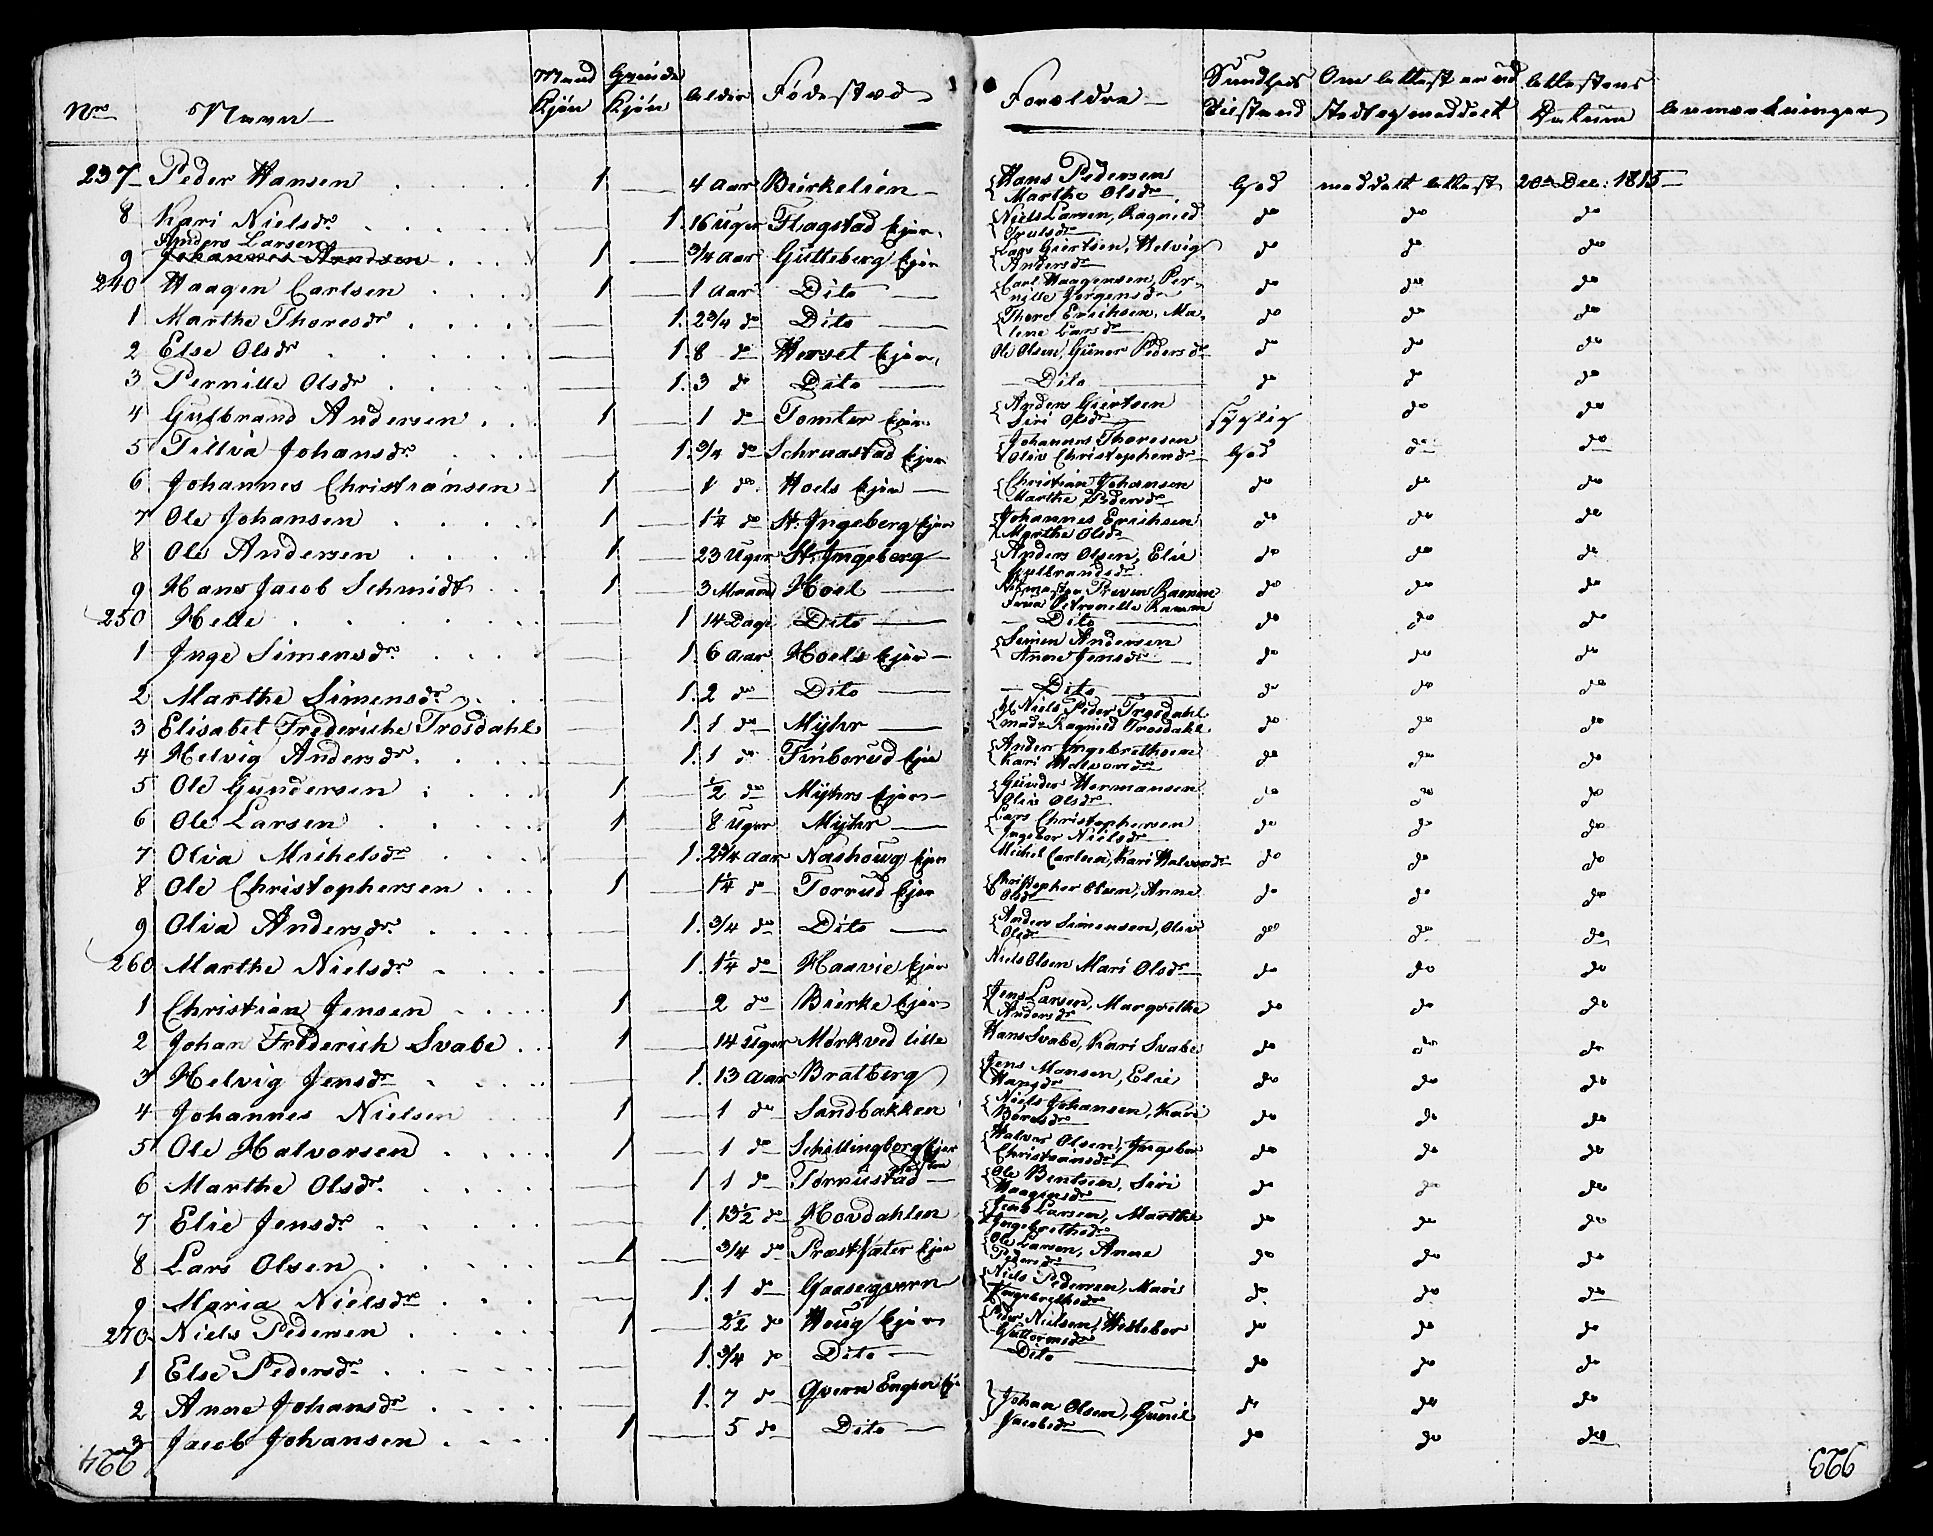 Nr Navn Mand Kjön Qvinde Kjön Alder Födestæd Forældre Sundheds Tilstand Om Attest er ud stædt og meddeelt Attestens Datum Anmærkninger
237 Peder Hansen 1 4 Aar Birkelien Hans Pedersen Marthe Olsdr God meddelt Attest 20de Dec: 1815
8 Kari Nielsdr 1 16 Uger Flagstad Ejer Niels Larsen, Ragnild Trulsdr do do do
9 Anders Larsen Johannes Arndsen 1 3/4 Aar Gutteberg Ejer Lars Giertsen, Helvig Andersdr do do do
240 Haagen Carlsen 1 1 Aar Dito Carl Haagensen, Pernille Jörgensdr do do do
1 Marthe Thoresdr 1 2 3/4 do Dito Thore Erichsen, Malene Larsdr do do do
2 Else Olsdr 1 8 do Herset Ejer Ole Olsen, Guner Pedersdr do do do
3 Pernille Olsdr 1 3 do Dito Dito do do do
4 Gulbrand Andersen 1 1 do Tomter Ejer Anders Giertsen Siri Olsdr Syglig do do
5 Tillva Johansdr 1 3/4 do Schraastad Ejer Johannes Thoresen Olive Christophersdr God do do
6 Johannes Christiansen 1 1 do Hoels Ejer Christian Johansen Marthe Pedersdr do do do
7 Ole Johansen 1 1 1/4 do St: Ingeberg Ejer Johannes Erichsen Marthe Olsdr do do do
8 Ole Andersen 1 23 Uger St: Ingeberg Anders Olsen, Elie Gulbrandsdr do do do
9 Hans Jacob Schmidt 1 3 Maaned Hoel Ramm Petronelle Ramm do do do
250 Helle 1 14 Dage Dito Dito do do do
1 Inge Simensdr 1 6 Aar Hoels Ejer Simen Andersen Anne Jensdr do do do
2 Marthe Simensdr 1 2 do Dito Dito do do do
3 Elisabet Frederiche Trosdahl 1 1 do Myhr Niels Peder Trosdahl mad: Ragnild Trosdahl do do do
4 Helvig Andersdr 1 1 do Finborud Ejer Anders Ingebrethsen Kari Halvorsdr do do do
5 Ole Gundersen 1 1/2 do Myhrs Ejer Gunder Hermansen Olive Olsdr do do do
6 Ole Larsen 1 8 Uger Myhr Lars Christophersen Ingebor Nielsdr do do do
7 Oliva Michelsdr 1 2 3/4 Aar Nashoug Ejer Michel Carlsen, Kari Halvorsdr do do do
8 Ole Christophersen 1 1 1/4 do Torrud Ejer Christopher Olsen, Anne Olsdr do do do
9 Oliva Andersdr 1 3/4 do Dito Anders Simensen, Olive Olsdr do do do
260 Marthe Nielsdr 1 1 1/4 do Haavie Ejer Niels Olsen Mari Olsdr do do do
1 Christian Jensen 1 2 do Bierke Ejer Jens Larsen, Margrethe Andersdr do do do
2 Johan Friderich Svabe 1 14 Uger Mörkved lille Hans Svabe, Kari Svabe do do do
3 Helvig Jensdr 1 13 Aar Bratberg Jens Monsen, Elie Hansdr do do do
4 Johannes Nielsen 1 1 do Sandbakken Niels Johansen, Kari Böresdr do do do
5 Ole Halvorsen 1 1 do Schillingberg Ejer Halvor Olsen, Ingebor Christiansdr do do do
6 Marthe Olsdr 1 1 do Tornustad Ole Bentsen, Siri Haagensdr do do do
7 Elie Jensdr 1 13 1/2 do Hovdahlen Jens Larsen, Marthe Ingebrethsdr do do do
8 Lars Olsen 1 3/4 do Præstsæter Ejer Ole Larsen, Anne Pedersdr do do do
9 Maria Nielsdr 1 1 do Gaasegvern Niels Pedersen, Mari Ingebrethsdr do do do
270 Niels Pedersen 1 2 1/2 do Houg Ejer Peder Nielsen, Hilleber Guttormsdr do do do
1 Else Pedersdr 1 3/4 do Dito Dito do do do
2 Anne Johansdr 1 7 do Qvern Engen Ej Johan Olsen, Gunil Jacobsdr do do do
3 Jacob Johansen 1 5 do Dito do do do
224 223